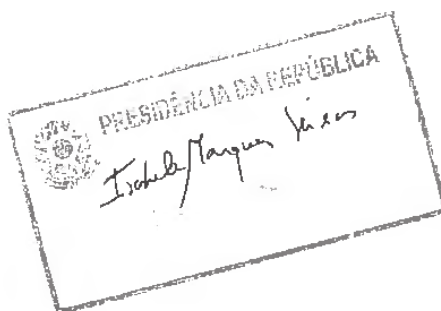 PRESIDÊNCIA DA REPÚBLICA
Isabela Marques